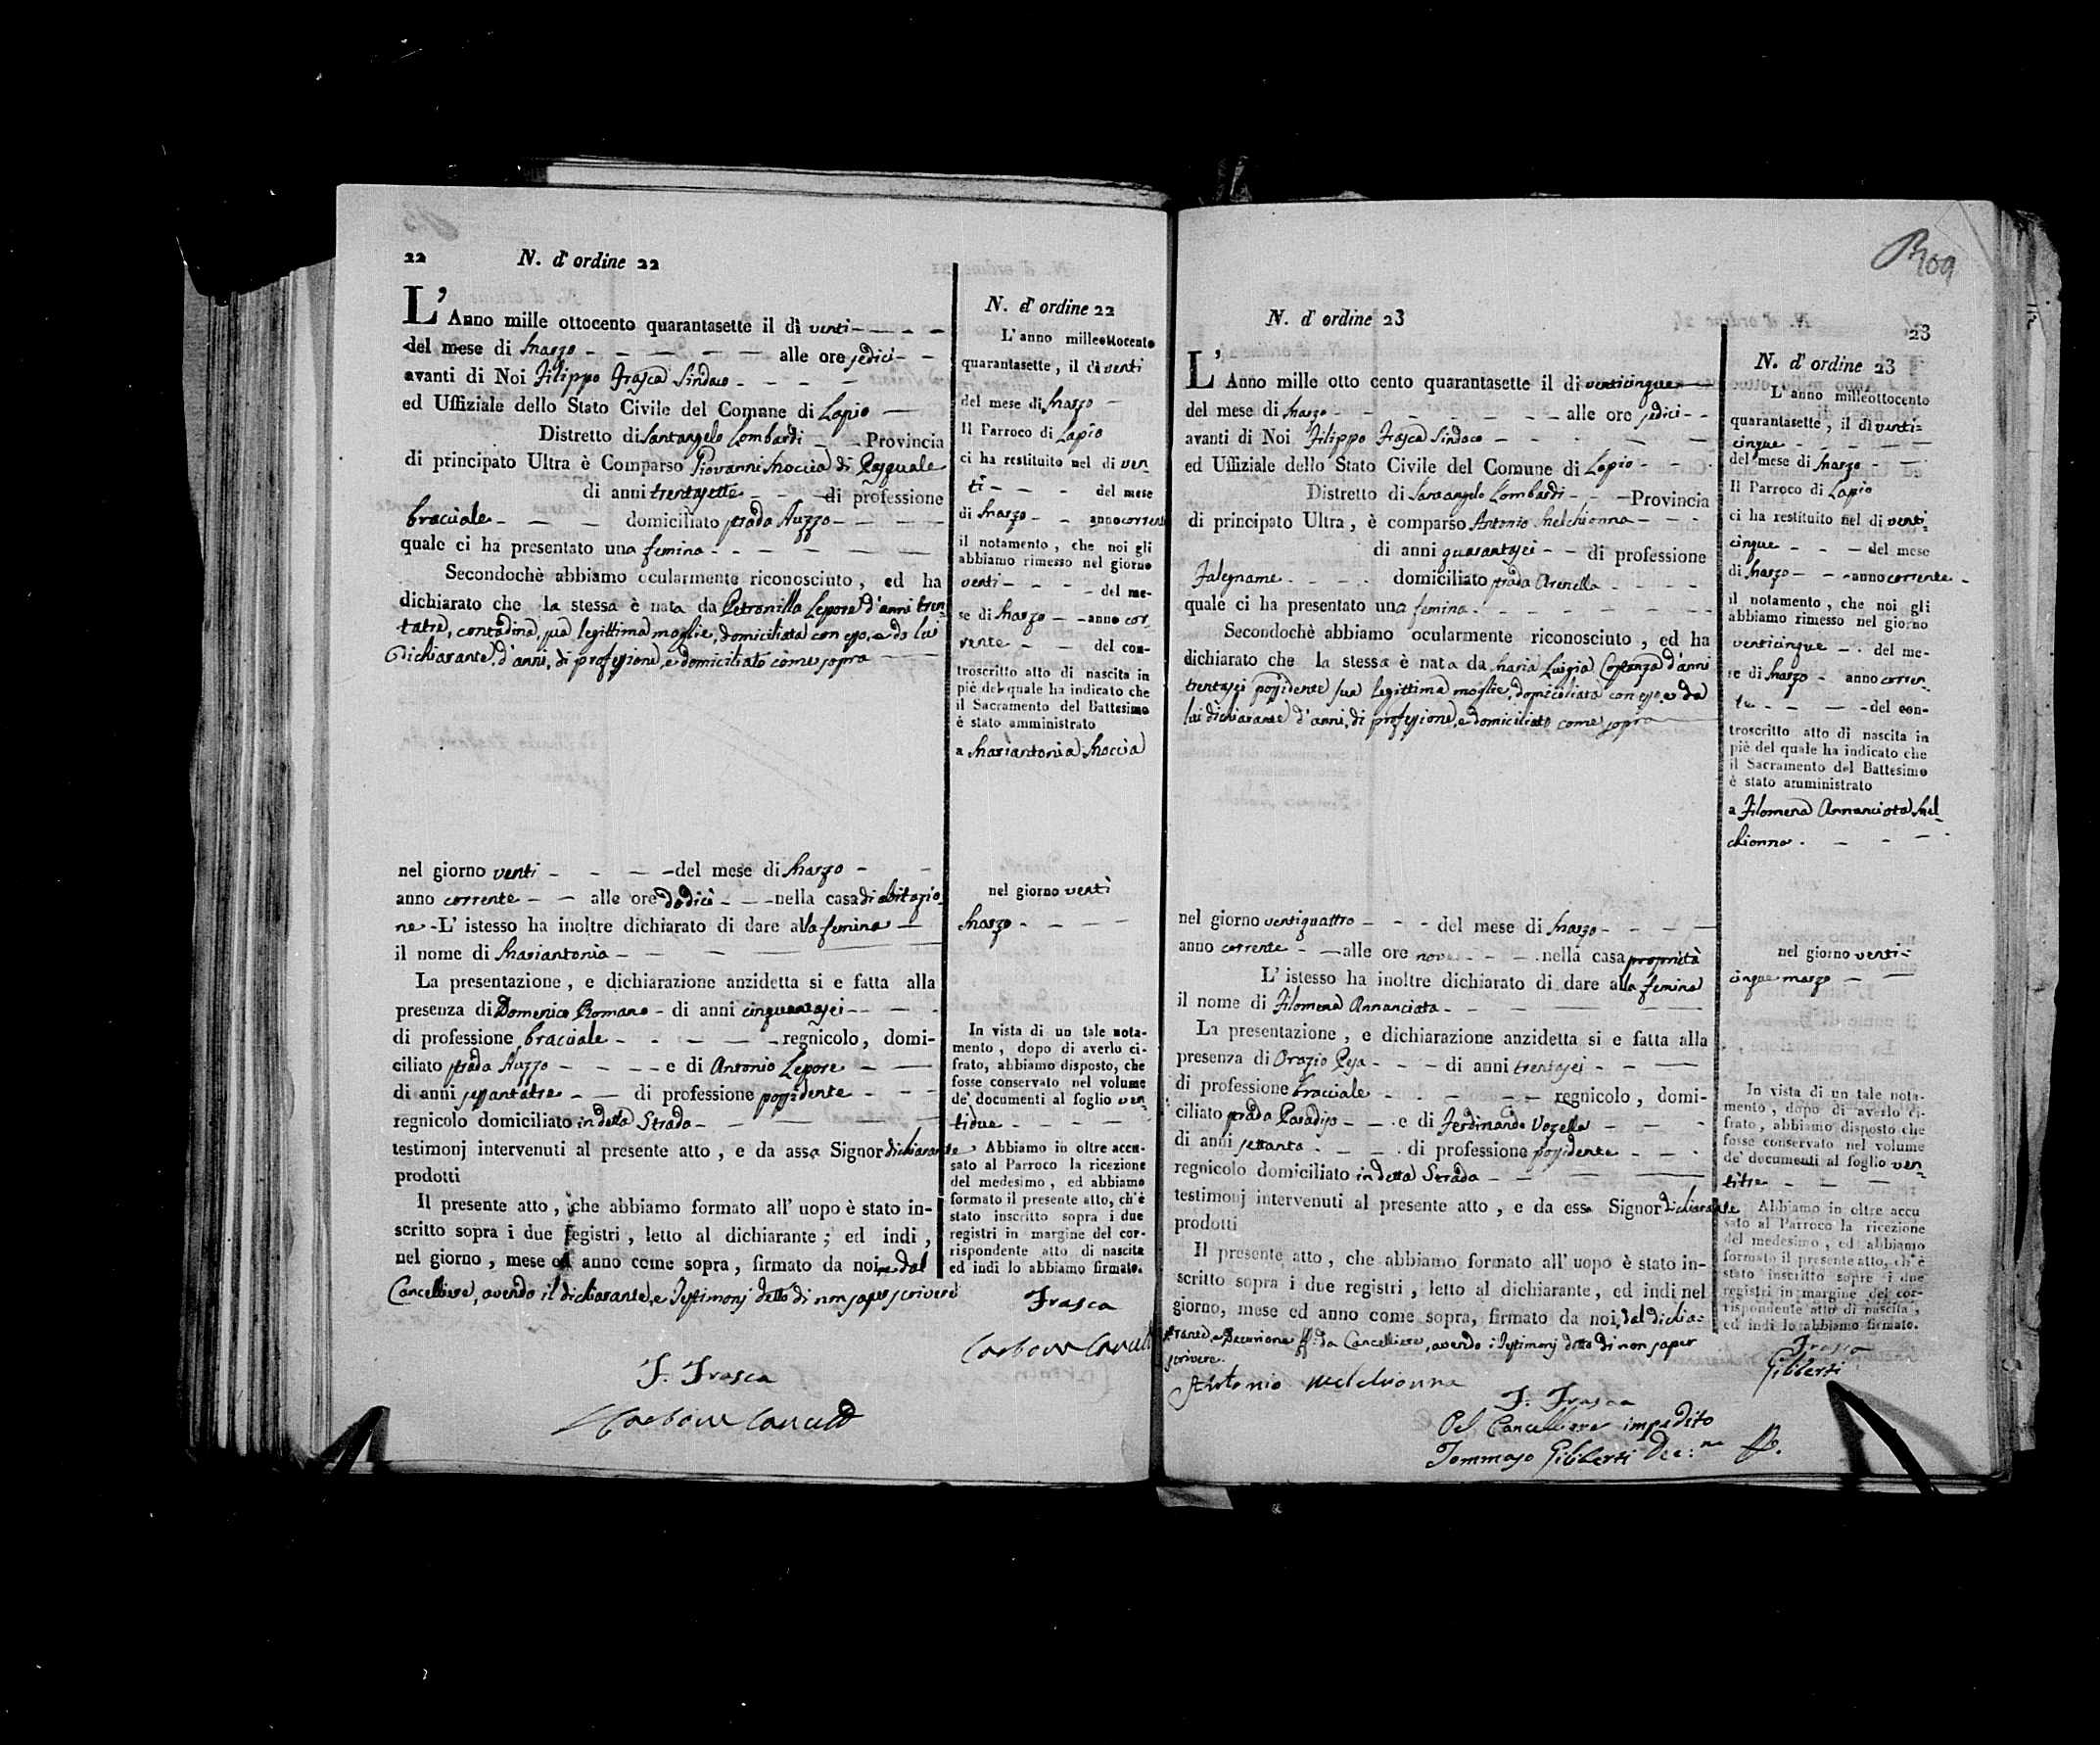 22
N. d' ordine 22
L' Anno mille ottocento quarantasette il dì venti
del mese di Marzo alle ore sedici
avanti di Noi Filippo Frasca Sindaco
ed Uffiziale dello Stato Civile del Comune di Lapio
Distretto di Santangelo Lombardi Provincia
di principato Ultra è Comparso Giovanni Moccia di Pasquale
di anni trentasette di professione
bracciale domiciliato strada Auzzo
quale ci ha presentato una femina
Secondochè abbiamo ocularmente riconosciuto, ed ha
dichiarato che la stessa è nata da Petronilla Lepore d'anni tren-
tatre, contadina, sua legittima moglie, domiciliata con esso, e da lui
dichiarante d'anni, di professione, e domiciliato come sopra
nel giorno venti del mese di Marzo
anno corrente alle ore dodici nella casa di abitazio-
ne L' istesso ha inoltre dichiarato di dare alla femina
il nome di Mariantonia
La presentazione, e dichiarazione anzidetta si e fatta alla
presenza di Domenico Romano di anni cinquantasei
di professione bracciale regnicolo, domi-
ciliato strada Auzzo e di Antonio Lepore
di anni sessantatre di professione possidente
regnicolo domiciliato in detta Strada
testimonj intervenuti al presente atto, e da assa Signor dichiarante
prodotti
Il presente atto, che abbiamo formato all' uopo è stato in-
scritto sopra i due registri, letto al dichiarante; ed indi,
nel giorno, mese ed anno come sopra, firmato da noi, e dal
Cancelliere, avendo il dichiarante, e Testimonj detto di non saper scrivere
F. Frasca
N. d' ordine 22
L' anno milleottocento
quarantasette, il dì venti
del mese di Marzo
Il Parroco di Lapio
ci ha restituito nel di ven-
ti del mese
di Marzo anno corrente
il notamento, che noi gli
abbiamo rimesso nel giorno
venti del me-
se di Marzo anno cor-
rente del con-
troscritto atto di nascita in
piè del quale ha indicato che
il Sacramento del Battesimo
è stato amministrato
a Mariantonia Moccia
nel giorno venti
Marzo
In vista di un tale nota-
mento, dopo di averlo ci-
frato, abbiamo disposto, che
fosse conservato nel volume
de' documenti al foglio ven-
tidue
Abbiamo in oltre accu-
sato al Parroco la ricezione
del medesimo, ed abbiamo
formato il presente atto, ch'è
stato inscritto sopra i due
registri in margine del cor-
rispondente atto di nascita
ed indi lo abbiamo firmato.
Frasca
109
23
N. d' ordine 23
L' Anno mille otto cento quarantasette il di venticinque
del mese di Marzo alle ore sedici
avanti di Noi Filippo Frasca Sindaco
ed Uffiziale dello Stato Civile del Comune di Lapio
Distretto di Santangelo Lombardi Provincia
di principato Ultra, è comparso Antonio Melchionna
di anni quarantasei di professione
Falegname domiciliato strada Arenella
quale ci ha presentato una femina
Secondochè abbiamo ocularmente riconosciuto, ed ha
dichiarato che la stessa è nata da Maria Luigia Costanza d'anni
trentasei possidente sua legittima moglie, domiciliata con esso, e da
lui dichiarante d'anni, di professione, e domiciliato come sopra
nel giorno ventiquattro del mese di Marzo
anno corrente alle ore nove nella casa propria
L' istesso ha inoltre dichiarato di dare alla femina
il nome di Filomena Annanciata
La presentazione, e dichiarazione anzidetta si e fatta alla
presenza di Orazio Pesa di anni trentasei
di professione bracciale regnicolo, domi-
ciliato strada Paradiso e di Ferdinando Vozella
di anni settanta di professione possidente
regnicolo domiciliato in detta Strada
testimonj intervenuti al presente atto, e da essa Signor dichiarante
prodotti
Il presente atto, che abbiamo formato all' uopo è stato in-
scritto sopra i due registri, letto al dichiarante, ed indi nel
giorno, mese ed anno come sopra, firmato da noi, dal dichia-
rante, e Decurione ff: da Cancelliere, avendo i Testimonj detto di non saper
scrivere.
Antonio Melchionna
F. Frasca
Pel Cancelliere impedito
Tommaso Giliberti Dec:ne ff.
N. d' ordine 23
L' anno milleottocento
quarantasette, il dì venti-
cinque
del mese di Marzo
Il Parroco di Lapio
ci ha restituito nel di venti-
cinque del mese
di Marzo anno corrente
il notamento, che noi gli
abbiamo rimesso nel giorno
venticinque del me-
se di Marzo anno corren-
te del con-
troscritto atto di nascita in
piè del quale ha indicato che
il Sacramento del Battesimo
è stato amministrato
a Filomena Annanciata Mel-
chionna
nel giorno venti-
cinque marzo
In vista di un tale nota-
mento, dopo di averlo ci-
frato, abbiamo disposto che
fosse conservato nel volume
de' documenti al foglio ven-
titre
Abbiamo in oltre accu
sato al Parroco la ricezione
del medesimo, ed abbiamo
formato il presente atto, ch'è
stato inscritto sopre i due
registri in margine del cor-
rispondente atto di nascita,
ed indi lo abbiamo firmato.
Frasca
Giliberti